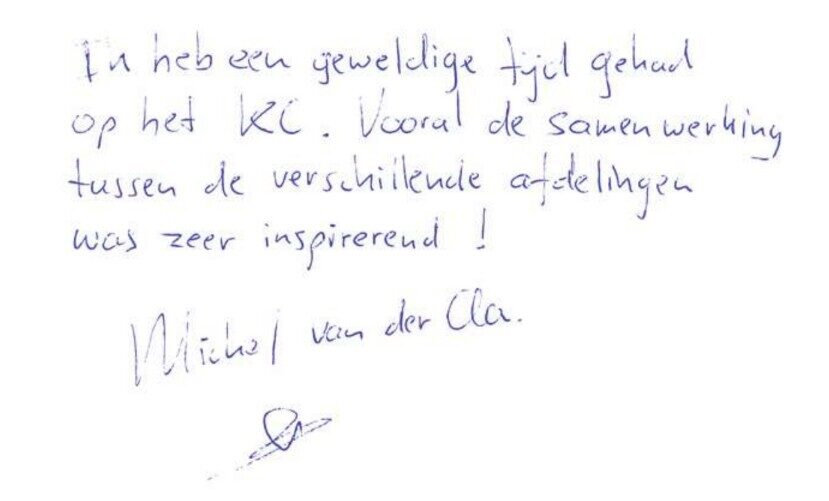 Ik heb een geweldige tijd gehad
op het KC. Vooral de samenwerking
tussen de verschillende afdelingen
was zeer inspirerend!
Michel van der